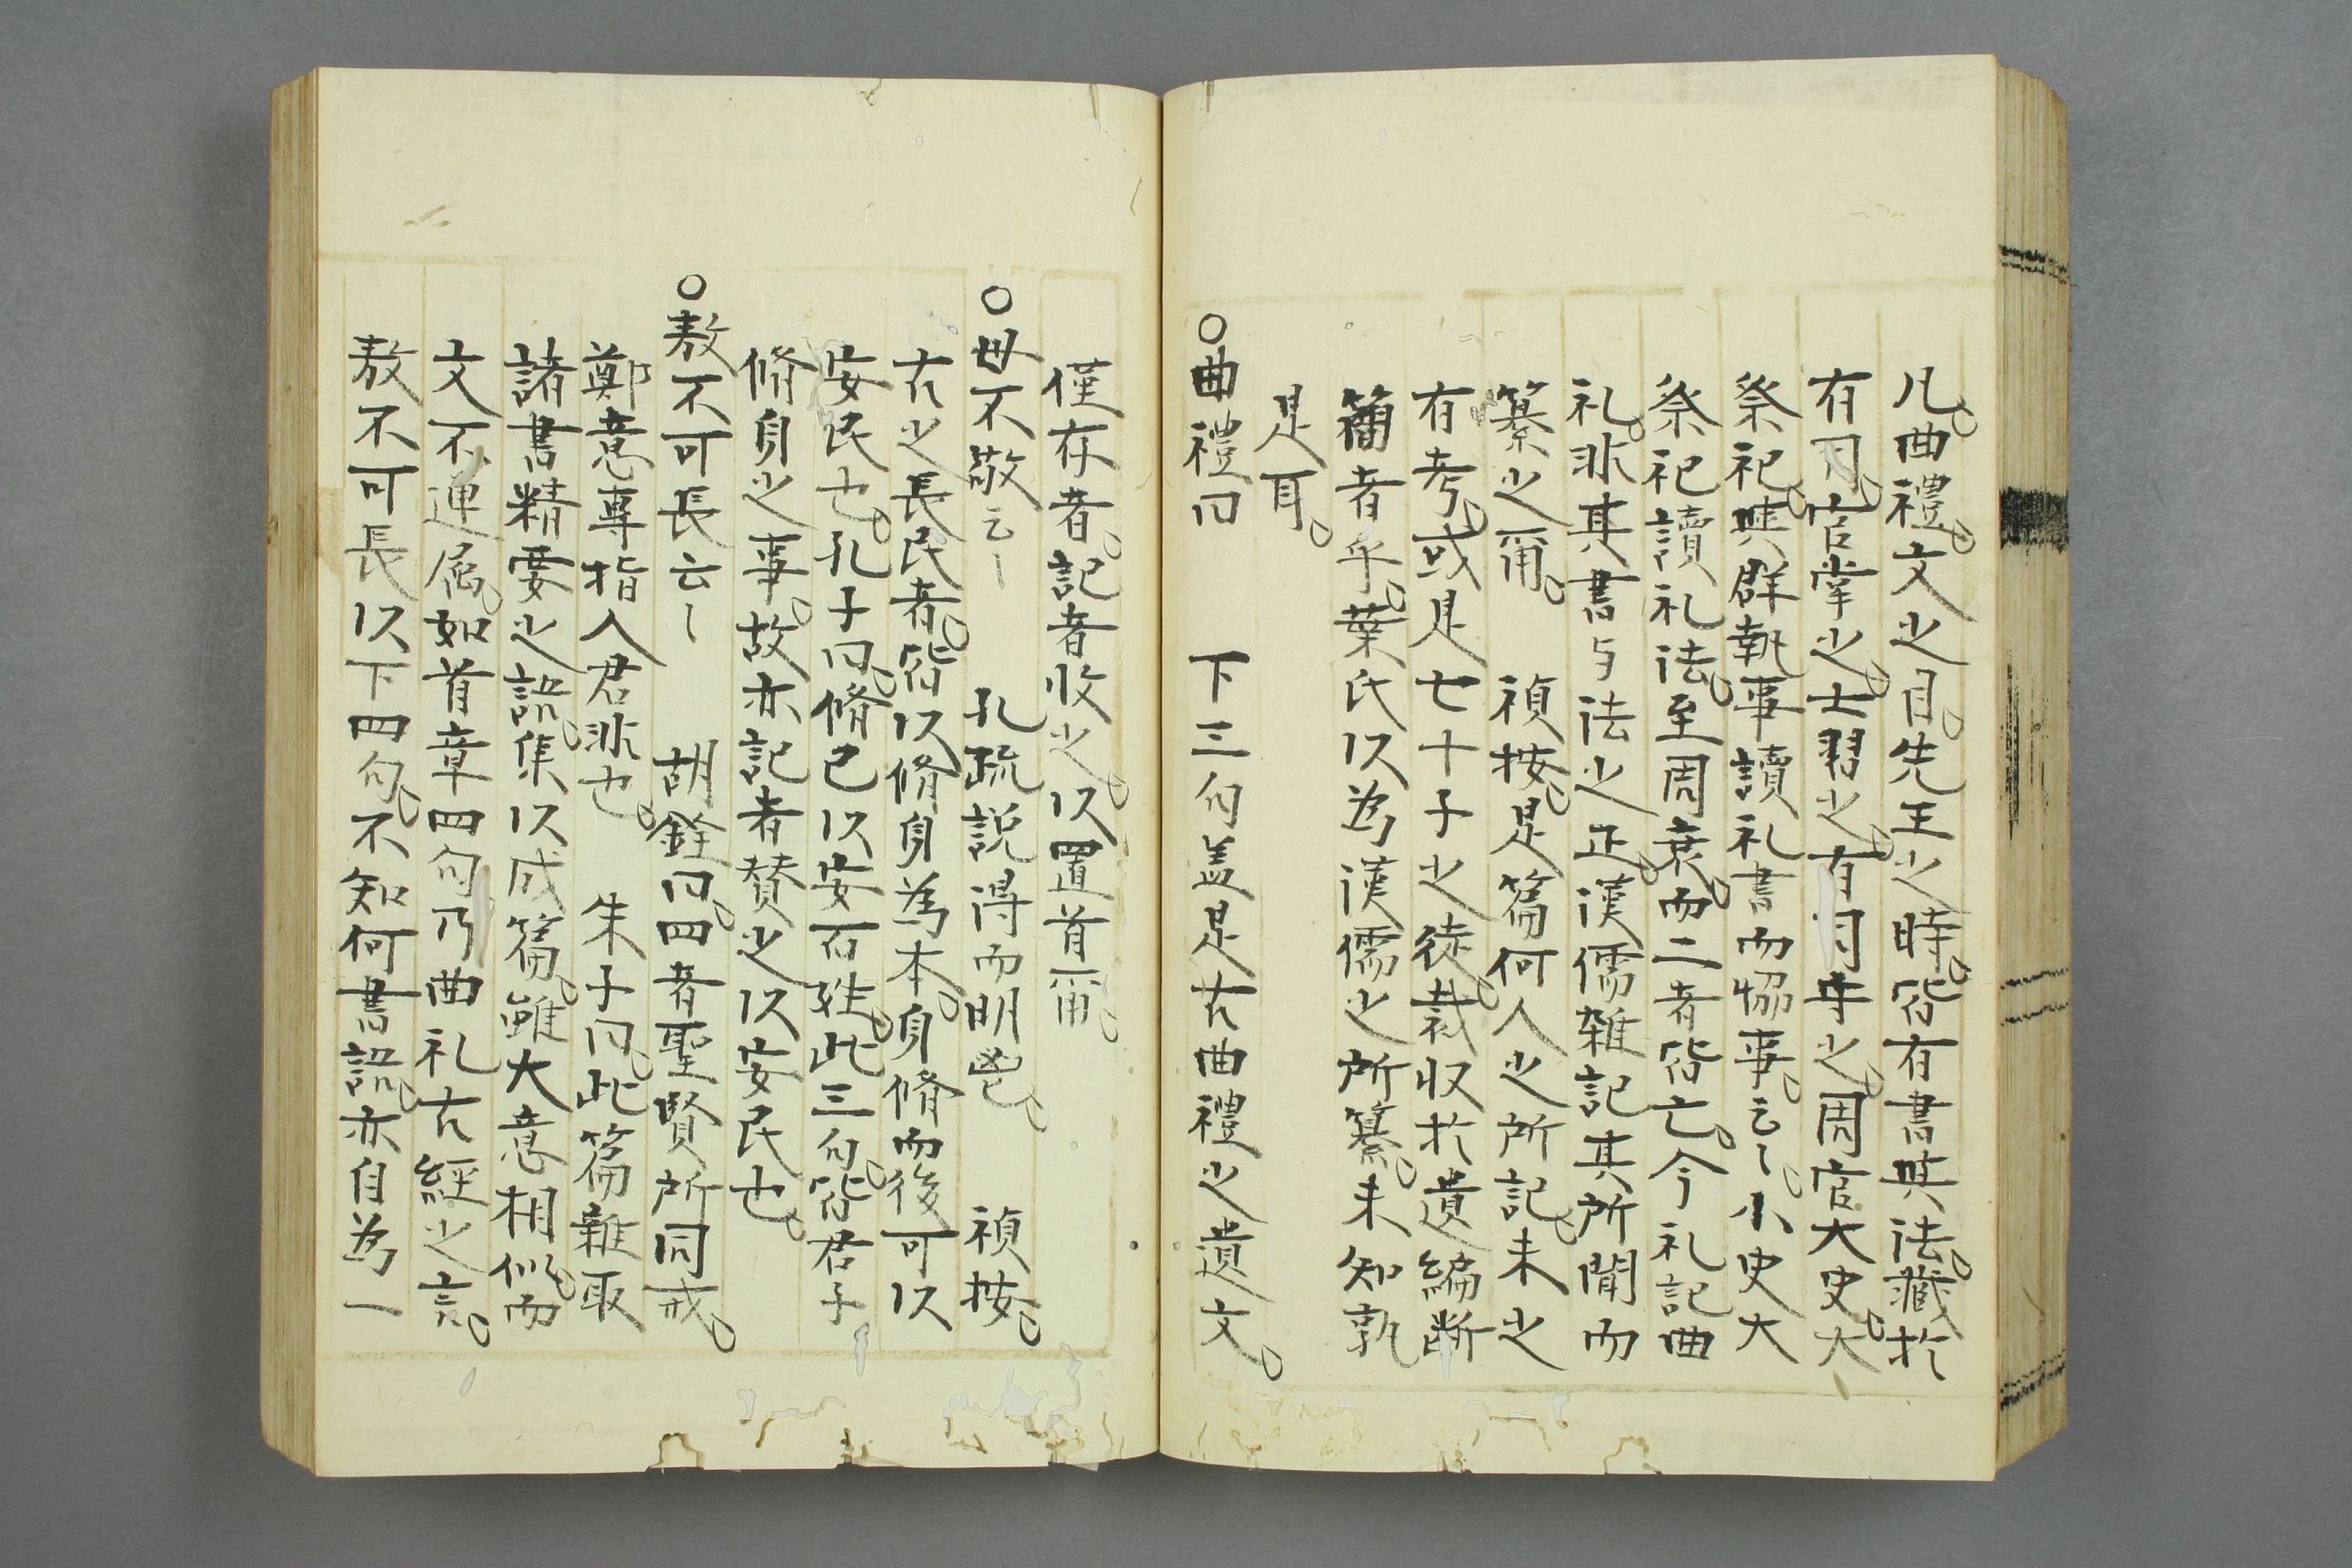 凡。曲禮。文之目。先王之時。皆有書與法。藏於
有司。官掌之。士習之。有司守之。周官大史。大
祭祀。與群執事讀礼書而恊事。云〻。小史大
祭祀讀礼法。至周衰。而二者皆亡。今礼記曲
礼。非其書与法之正。漢儒雜記其所聞而
纂之甯。　禎按。是篇何人之所記。未之
有考。或是七十子之徒。裁収於遺編断
簡者乎。葉氏以為漢儒之所纂。未知孰
是耳。
○曲禮曰　下三句盖是古曲禮之遺文。
僅存者。記者收之。以置首甯。
○毋不敬云〻　孔疏説得而明鬯。　禎按。
古之長民者。皆以脩身為本。身脩而後可以
安民也。孔子曰。脩己以安百姓。此三句。皆君子
脩身之事。故亦記者賛之以安民也。
○敖不可長云〻　胡銓曰。四者聖賢所同戒。
鄭意專指人君非也。　朱子曰。此篇雜取
諸書精要之語。集以成篇。雖大意相似。而
文不連属。如首章四句乃曲礼古經之言。
敖不可長以下四句。不知何書語。亦自為一